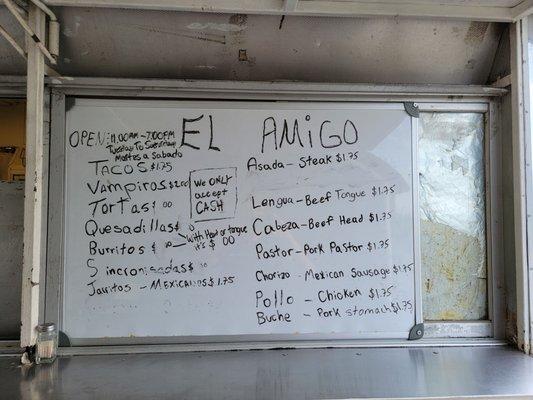 OPEN: 11:00AM-7:00PM
Tuesday to Saturday
Martes a Sabado
EL AMIGO
TACOS $1.75
Vampiros $2.00
Tortas $ 00
Quesadillas $
Burritos $
with Head or tongue
it's $ 00
Sincronisadas $
Jarritos - MEXICANOS $1.75
WE ONLY
accept
CASH
Asada - Steak $1.75
Lengua - Beef Tongue $1.75
Cabeza - Beef Head $1.75
Pastor - Pork Pastor $1.75
Chorizo - Mexican Sausage $1.75
Pollo - Chicken $1.75
Buche - Pork stomach $1.75